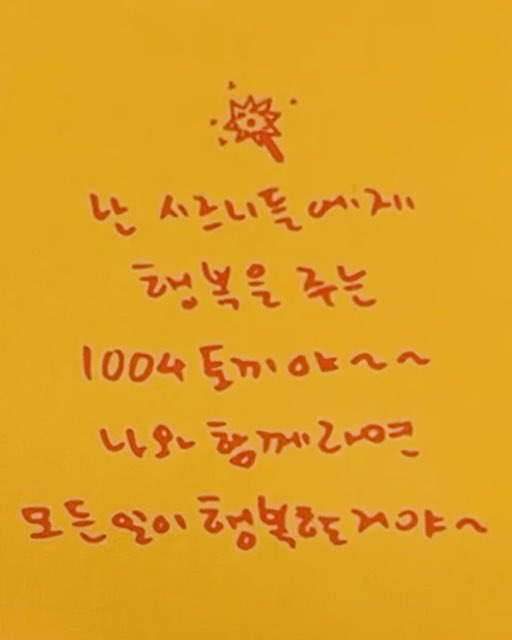 난 시즈니들에게
행복을 주는
1004 토끼야~~
나와 함께라면
모든 일이 행복할거야~